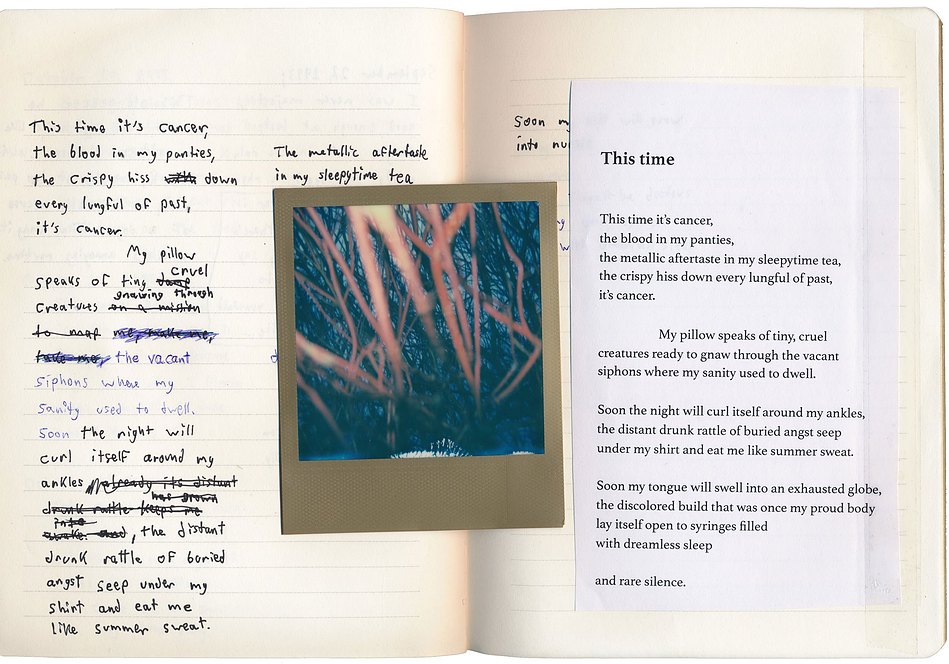 This time it's cancer,
the blood in my panties,
the crispy hiss down
every lungful of past,
it's cancer.
My pillow
cruel
speaks of tiny
gnawing through
creatures on a mission
to map me, make me,
take me, the vacant
siphons where my
sanity used to dwell.
Soon the night will
curl itself around my
ankles already its distant
has grown
drunk rattle keeps me
into
awake. and, the distant
drunk rattle of buried
angst seep under my
shirt and eat me
like summer sweat.
The metallic aftertaste
in my sleepytime tea
Soon
into
This time
This time it's cancer,
the blood in my panties,
the metallic aftertaste in my sleepytime tea,
the crispy hiss down every lungful of past,
it's cancer.
My pillow speaks of tiny, cruel
creatures ready to gnaw through the vacant
siphons where my sanity used to dwell.
Soon the night will curl itself around my ankles,
the distant drunk rattle of buried angst seep
under my shirt and eat me like summer sweat.
Soon my tongue will swell into an exhausted globe,
the discolored build that was once my proud body
lay itself open to syringes filled
with dreamless sleep
and rare silence.